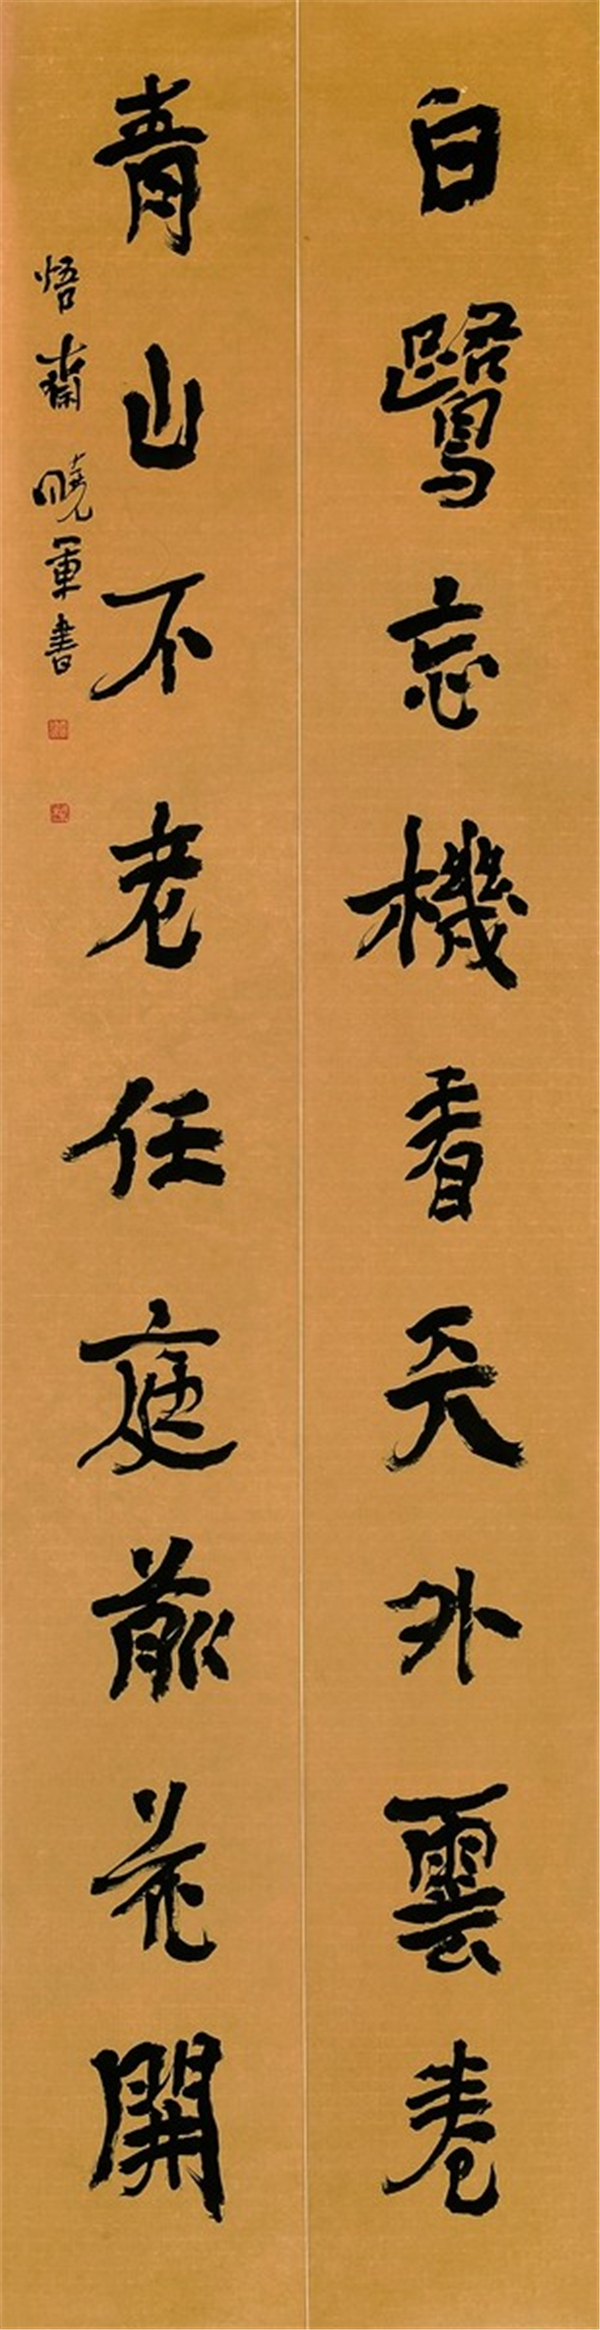 白鷺忘機看天外雲卷
青山不老任庭前花開
悟齋曉軍書